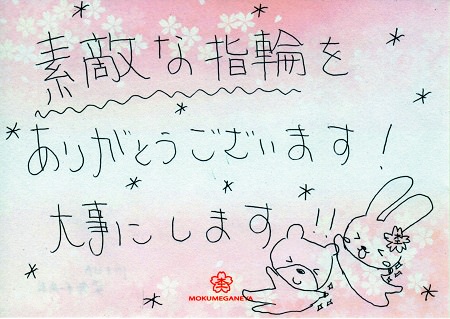 素敵な指輪を
ありがとうございます!
大事にします!!
MOKUMEGANEYA